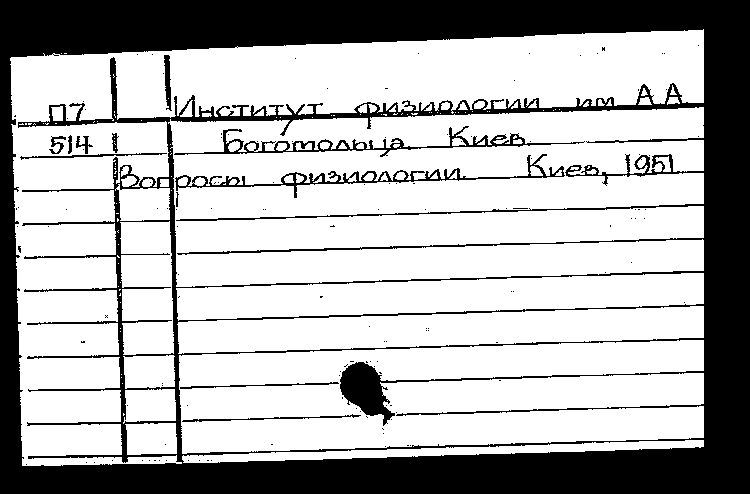 П7 Институт физиологии им А А
514 Богомольца. Киев.
Вопросы физиологии. Киев, 1951